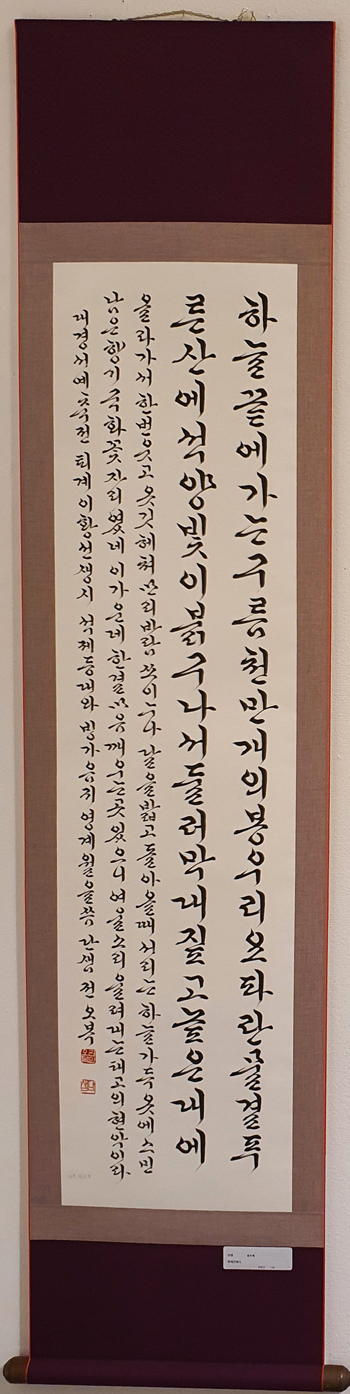 하늘끝에가는구름천만개의봉우리요파란물결푸
른산에석양빛이붉구나서둘러막대짚고높은대에
올라가서한번웃고옷깃헤쳐만리바람쏘이누나달을밟고돌아올때서리는하늘가득옷에스민
남은향기국화꽃자리였네이가운데한결마음깨우는곳있으니여울소리울려내는태고의현악이라
대경서예축전 퇴계이황선생시 석제등대와 빙가음지영계월을씀 난샘 전오복